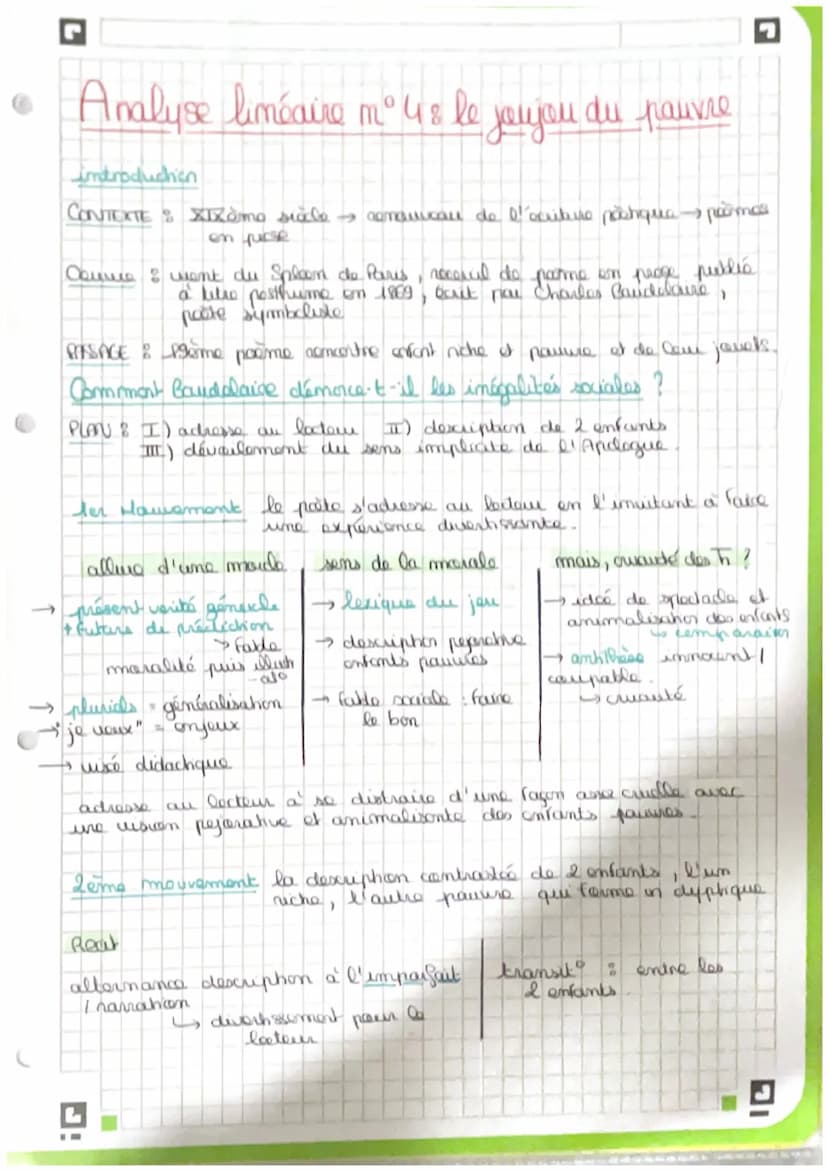 Analyse linéaire n° 4 : le joujou du pauvre
introduction
CONTEXTE : XIXème siècle → renouveau de l'écriture poétique → poèmes
en prose
Oeuvre : vient du Spleen de Paris, recueil de poème en prose publié
à titre posthume en 1869, écrit par Charles Baudelaire,
poète symboliste
PASSAGE : 19ème poème rencontre enfant riche et pauvre et de leur jouets.
Comment Baudelaire dénonce-t-il les inégalités sociales ?
PLAN : I) adresse au lecteur II) description de 2 enfants
III) dévoilement du sens implicite de l'Apologue.
1er Mouvement le poète s'adresse au lecteur en l'invitant à faire
une expérience divertissante.
allure d'une morale
→ présent vérité générale
+ futurs de prédiction
→ fable
moralité puis illustr
-at°
→ pluriels = généralisation
→ "je veux" = enjeux
→ visé didactique
sens de la morale
→ lexique du jeu
→ description pejorative
enfants pauvres
→ fable sociale : faire
le bon
mais, cruauté des
?
→ idée de spectacle et
animalisation des enfants
↳ comparaison
→ antithèse innocent /
coupable.
→ cruauté
adresse au lecteur à se distraire d'une façon assez cruelle avec
une vision pejorative et animalisante des enfants pauvres.
2ème mouvement la description contrastée de 2 enfants, l'un
riche, l'autre pauvre qui forme un dyptique
Recit
alternance description à l'imparfait
/ narration
↳ divertissement pour le
lecteur
transit° : entre les
2 enfants.